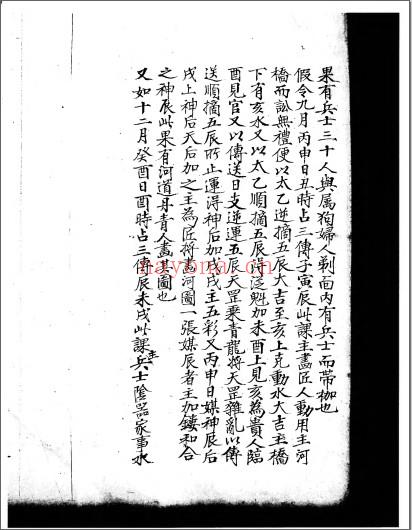 果有兵士三十人與属狗婦人剃面内有兵士而带枷也
假令九月丙申日丑時占三傳子寅辰此課主畫匠人動用主河
橋而訟無禮便以太乙逆摘五辰大吉至亥上克動水大吉主橋
下有亥水又以太乙順摘五辰得泛魁加未酉上見亥為貴人臨
酉見官又以傳送日支逆運五辰天罡乘青龍將天罡雜亂以傳
送順摘五辰所止運得神后加戌戌主五彩又丙申日媒神辰后
戌上神后天后加之主為匠將畫河圖一張媒辰者主加鏤和合
之神辰此果有河道丹青人畫其圖也
又如十二月癸酉日酉時占三傳辰未戌此課主兵士陰器家事水
nayona.cn